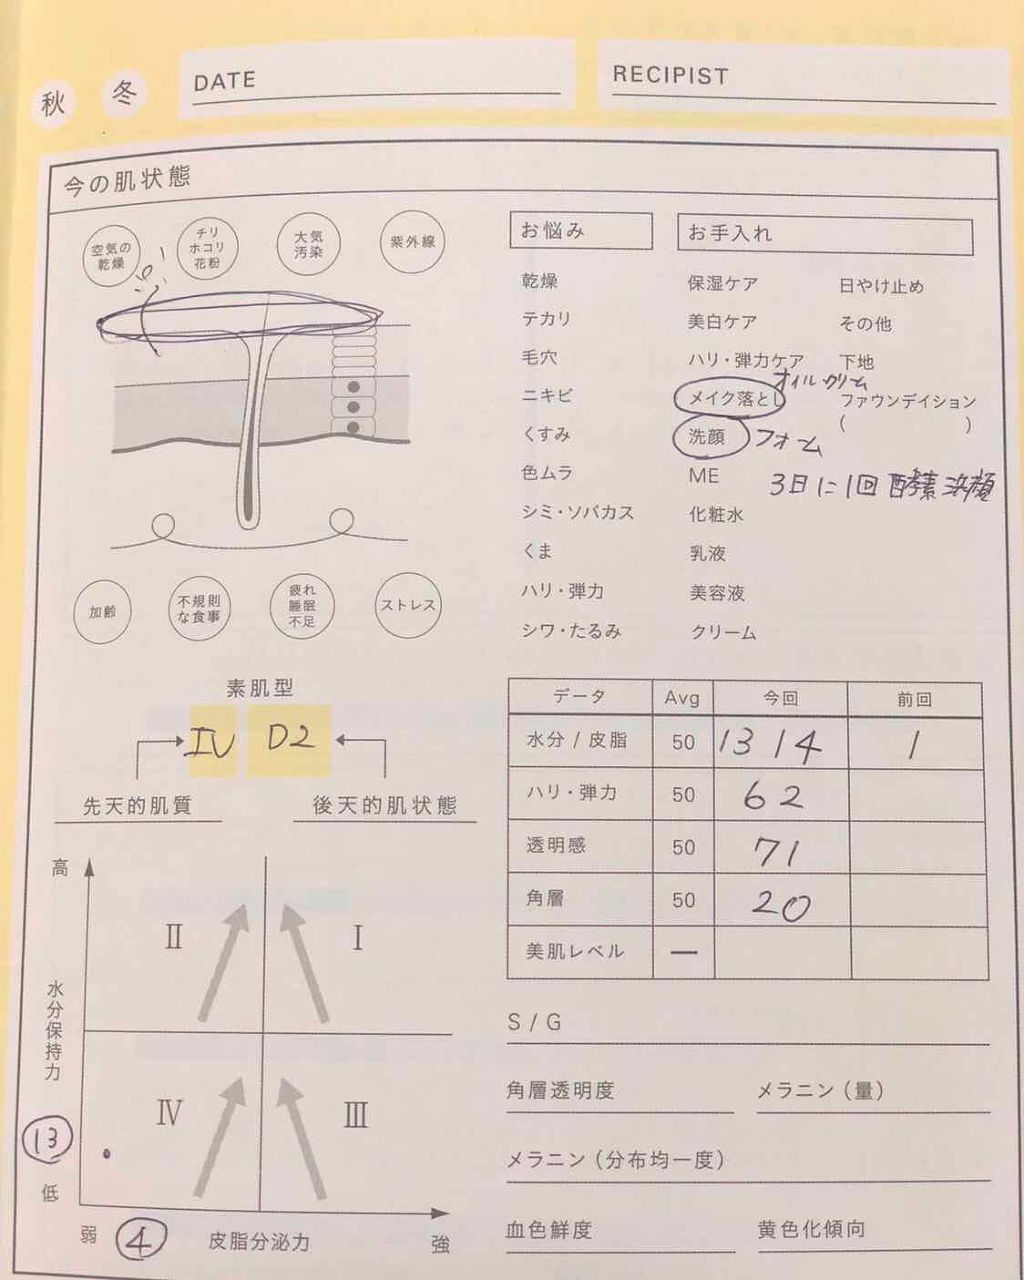 秋 冬 DATE RECIPIST
今の肌状態
空気の乾燥
チリホコリ花粉
大気汚染
紫外線
加齢
不規則な食事
疲れ睡眠不足
ストレス
お悩み
乾燥
テカリ
毛穴
ニキビ
くすみ
色ムラ
シミ・ソバカス
くま
ハリ・弾力
シワ・たるみ
お手入れ
保湿ケア 日やけ止め
美白ケア その他
ハリ・弾力ケア 下地
オイル クリーム
メイク落とし ファウンデイション
( )
洗顔 フォーム
ME 3日に1回 酵素洗顔
化粧水
乳液
美容液
クリーム
素肌型
IV D2
先天的肌質 後天的肌状態
高
水分保持力
13
低
II I
IV III
弱 4 皮脂分泌力 強
データ Avg 今回 前回
水分 / 皮脂 50 13 14 1
ハリ・弾力 50 62
透明感 50 71
角層 50 20
美肌レベル —
S / G
角層透明度 メラニン(量)
メラニン(分布均一度)
血色鮮度 黄色化傾向